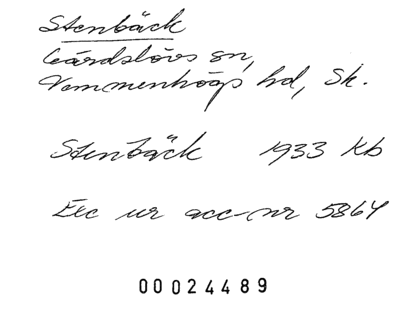 Stenbäck
Gärdslövs sn,
Vemmenhögs hd, Sk.
Stenbäck 1933 Kb
Exc ur acc-nr 5864
00024489